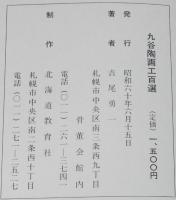 九谷陶画工百選
（定価）一、五〇〇円
発行 昭和六十年六月十五日
著者 吉尾勇一
札幌市中央区南三条西九丁目
骨董会館内
電話（〇一一）二六一―三七四一
制作 北海道教育社
札幌市中央区南二条西十丁目
電話（〇一一）二七一―二五二七